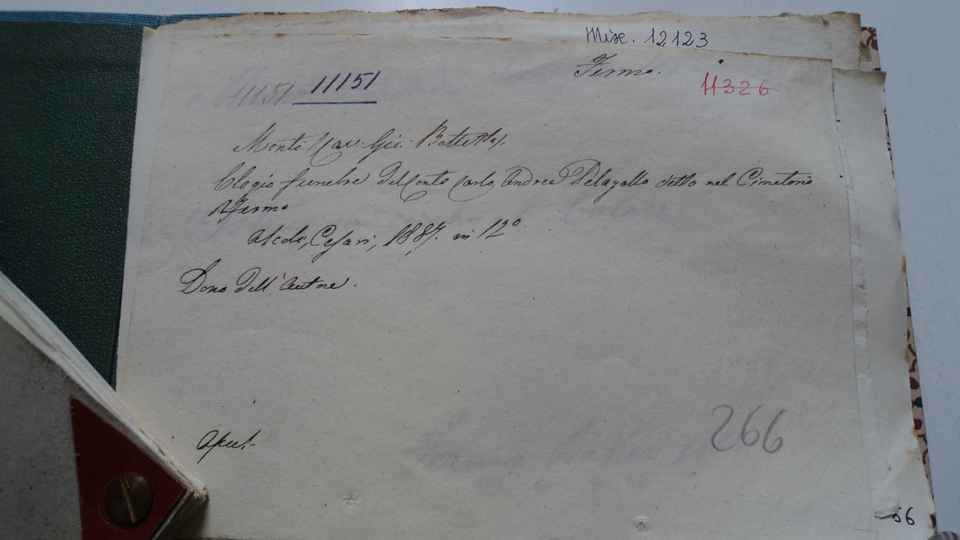 Misc. 12123
Fermo.
11151 11151
11326
Monti Cav. Gio. Batt.
Elogio funebre del Conte Carlo Andrea Pelagallo detto nel Cimetorio
di Fermo
Ascoli, Cesari, 1887. in 12°
Dono dell'Autore.
Opusc.
266
66